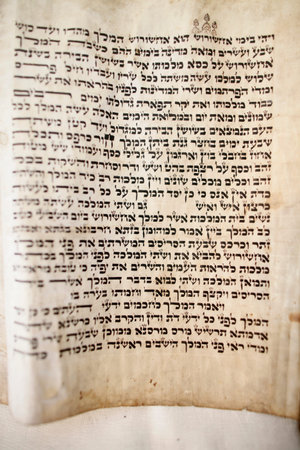 ויהי בימי אחשורוש הוא אחשורוש המלך מהדו ועד כוש
שבע ועשרים ומאה מדינה בימים ההם כשבת המלך
אחשורוש על כסא מלכותו אשר בשושן הבירה בשנת
שלוש למלכו עשה משתה לכל שריו ועבדיו חיל פרס
ומדי הפרתמים ושרי המדינות לפניו בהראתו את עשר
כבוד מלכותו ואת יקר תפארת גדולתו ימים רבים
שמונים ומאת יום ובמלואת הימים האלה עשה המלך לכל
העם הנמצאים בשושן הבירה למגדול ועד קטן משתה
שבעת ימים בחצר גנת ביתן המלך חור כרפס ותכלת
אחוז בחבלי בוץ וארגמן על גלילי כסף ועמודי שש מטות
זהב וכסף על רצפת בהט ושש ודר וסחרת והשקות בכלי
זהב וכלים מכלים שונים ויין מלכות רב כיד המלך
והשתיה כדת אין אנס כי כן יסד המלך על כל רב ביתו לעשות
כרצון איש ואיש גם ושתי המלכה עשתה משתה
נשים בית המלכות אשר למלך אחשורוש ביום השביעי כטוב
לב המלך ביין אמר למהומן בזתא חרבונא בגתא ואבגתא
זתר וכרכס שבעת הסריסים המשרתים את פני המלך
אחשורוש להביא את ושתי המלכה לפני המלך בכתר
מלכות להראות העמים והשרים את יפיה כי טובת מראה היא
ותמאן המלכה ושתי לבוא בדבר המלך אשר ביד
הסריסים ויקצף המלך מאד וחמתו בערה בו
ויאמר המלך לחכמים ידעי העתים כי כן דבר
המלך לפני כל ידעי דת ודין והקרב אליו כרשנא שתר
אדמתא תרשיש מרס מרסנא ממוכן שבעת שרי פרס
ומדי ראי פני המלך הישבים ראשנה במלכות